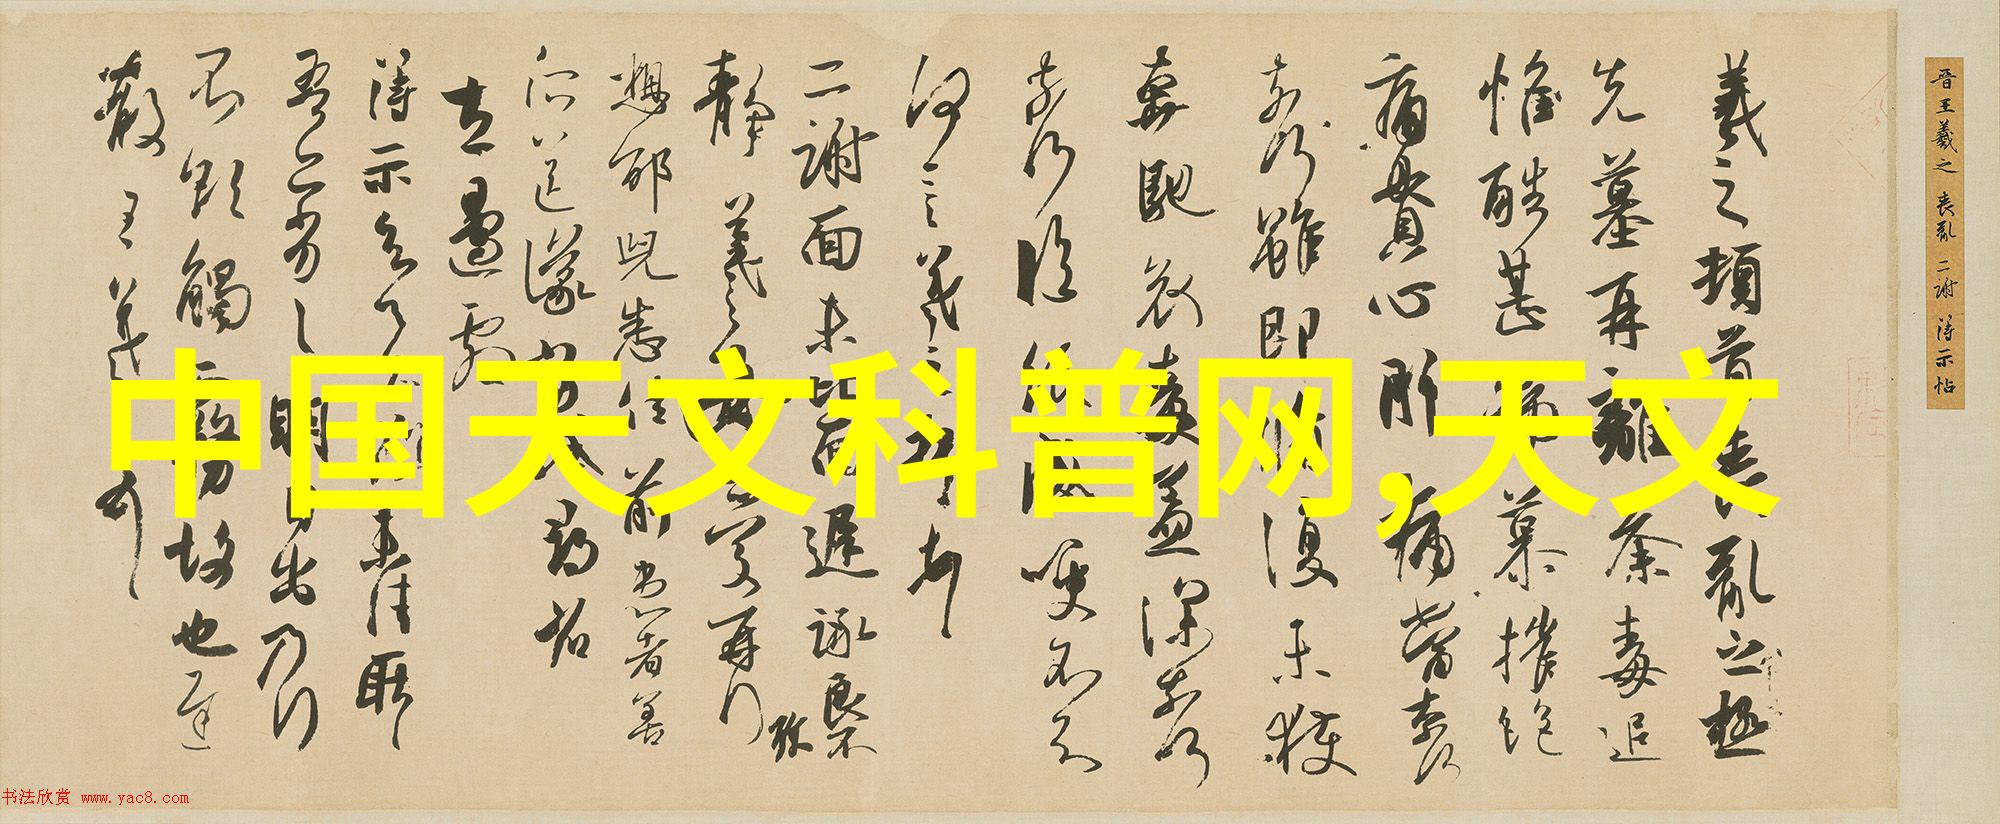 晋王羲之 喪亂 二謝 得示帖
羲之頓首喪亂之極
先墓再離荼毒追
惟酷甚號慕摧絕
痛貫心肝痛當奈何
奈何雖即脩復未獲
奔馳哀毒益深奈何
奈何臨紙感哽不知
何言羲之頓首
二謝面未比面遲詠良不
靜羲之女愛再拜
想邵兒悉佳前患者善
所送議當試尋省
左邊劇
得示知足下猶未佳耿
吾亦劣劣明日出乃行
不欲觸霧故也遲
散王羲之頓首
中国天文科普网,天文
书法欣赏 www.yac8.com